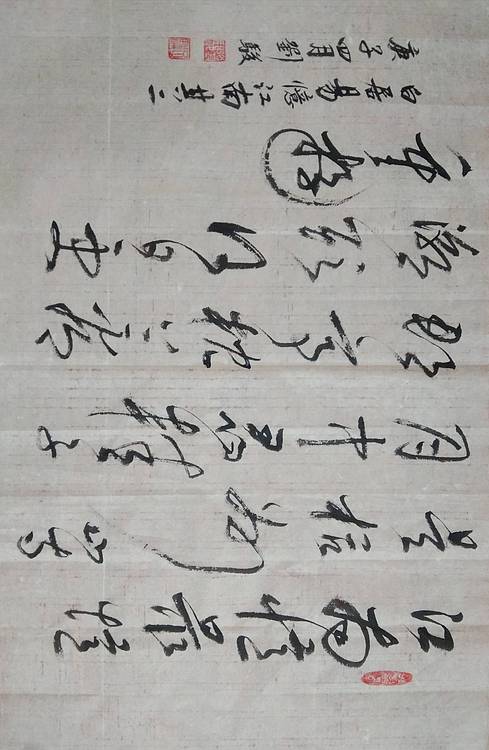 江南憶最憶
是杭州山寺
月中尋桂子
郡亭枕上看
潮頭何日更
重遊
白居易憶江南其二
庚子四月劉駿